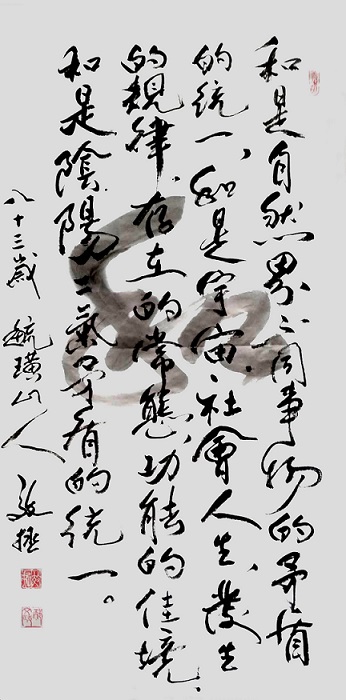 和是自然界不同事物的矛盾
的统一、和是宇宙、社會人生、發生
的規律、存在的常態、功能的佳境、
和是陰陽二氣矛盾的统一。
八十三歲 毓璜山人